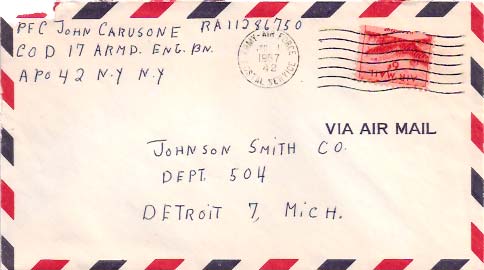 PFC JOHN CARUSONE RA11286750
CO D 17 ARMD. ENG. BN.
APO 42 N.Y N.Y
ARMY-AIR FORCE
1
1957
42
POSTAL SERVICE
AIR MAIL
6¢
VIA AIR MAIL
JOHNSON SMITH CO.
DEPT. 504
DETROIT 7, MICH.